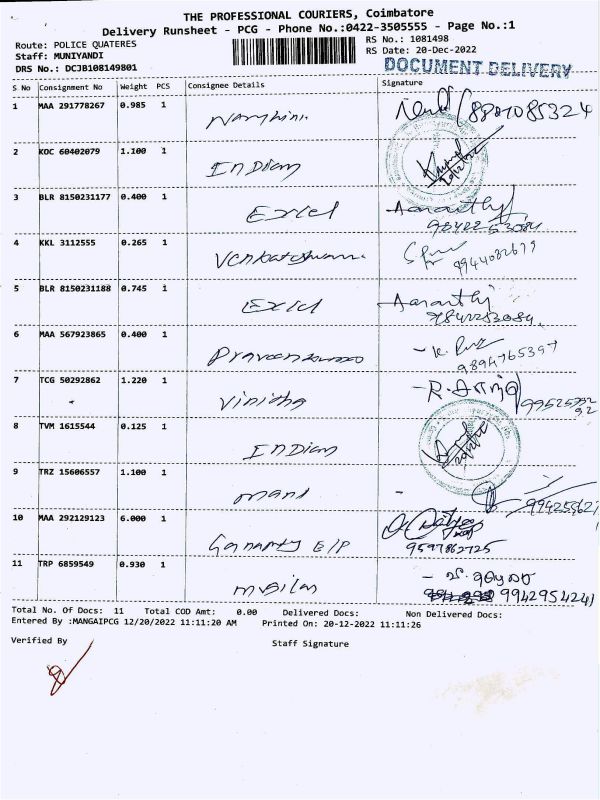 THE PROFESSIONAL COURIERS, Coimbatore
Delivery Runsheet - PCG - Phone No.:0422-3505555 - Page No.:1
Route: POLICE QUATERES
RS No.: 1081498
Staff: MUNIYANDI
RS Date: 20-Dec-2022
DRS No.: DCJB108149801
DOCUMENT DELIVERY
S No Consignment No Weight PCS Consignee Details Signature
1 MAA 291778267 0.985 1
2 KOC 60402079 1.100 1 INDian
3 BLR 8150231177 0.400 1 Excel Aaranthy
9842253084
4 KKL 3112555 0.265 1 9944082679
5 BLR 8150231188 0.745 1 Excel Aaranthy
9842253084
6 MAA 567923865 0.400 1
9894765397
7 TCG 50292862 1.220 1 Vinitha
8 TVM 1615544 0.125 1 INDian
9 TRZ 15606557 1.100 1 mani
10 MAA 292129123 6.000 1 Ganapathy E/P
9597862725
11 TRP 6859549 0.930 1
9942954241
Total No. Of Docs: 11 Total COD Amt: 0.00 Delivered Docs: Non Delivered Docs:
Entered By :MANGAIPCG 12/20/2022 11:11:20 AM Printed On: 20-12-2022 11:11:26
Verified By Staff Signature